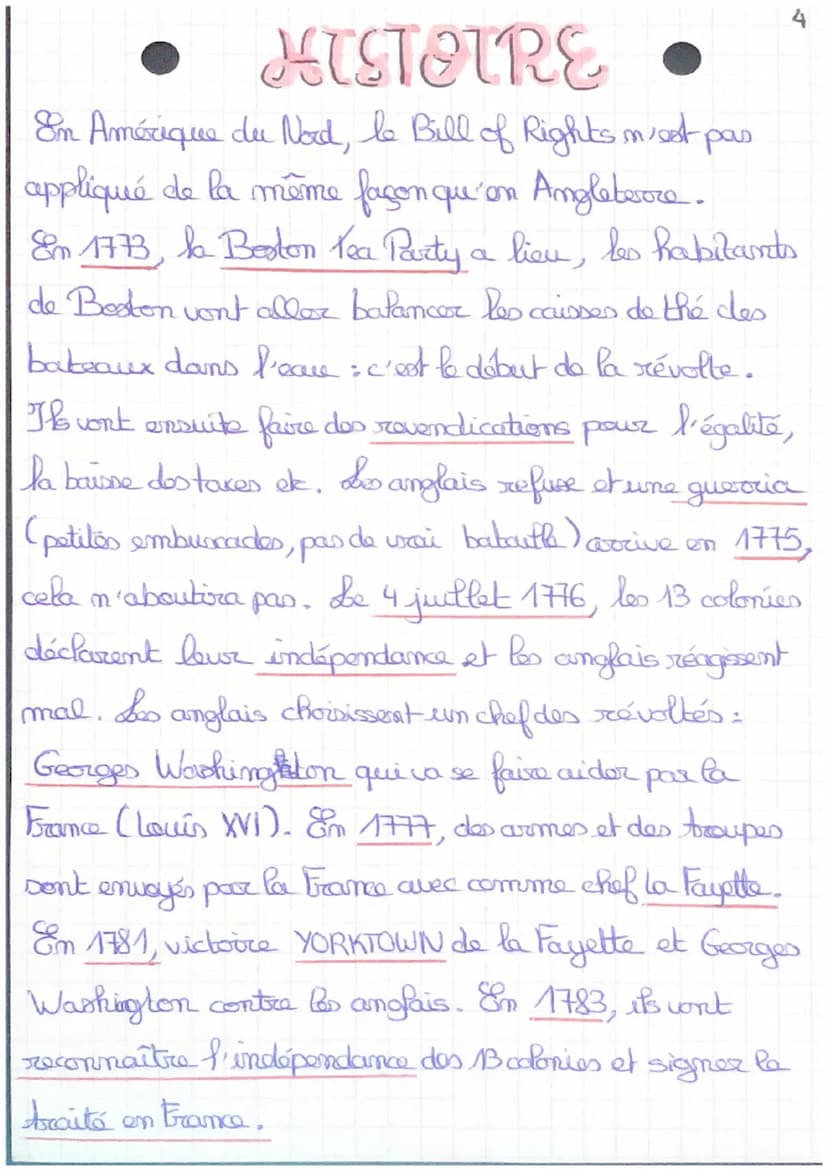 4
HISTOIRE
En Amérique du Nord, le Bill of Rights n'est pas
appliqué de la même façon qu'en Angleterre.
En 1773, la Boston Tea Party a lieu, les habitants
de Boston vont aller balancer les caisses de thé des
bateaux dans l'eau : c'est le début de la révolte.
Ils vont ensuite faire des revendications pour l'égalité,
la baisse des taxes etc. Les anglais refuse et une guerria
(petites embuscades, pas de vrai bataille) arrive en 1775,
cela n'aboutira pas. Le 4 juillet 1776, les 13 colonies
déclarent leur indépendance et les anglais réagissent
mal. Les anglais choisissent un chef des révoltés :
Georges Washington qui va se faire aider par la
France (Louis XVI). En 1777, des armes et des troupes
sont envoyés par la France avec comme chef la Fayette.
En 1781, victoire YORKTOWN de la Fayette et Georges
Washington contre les anglais. En 1783, ils vont
reconnaître l'indépendance des 13 colonies et signer le
traité en France.